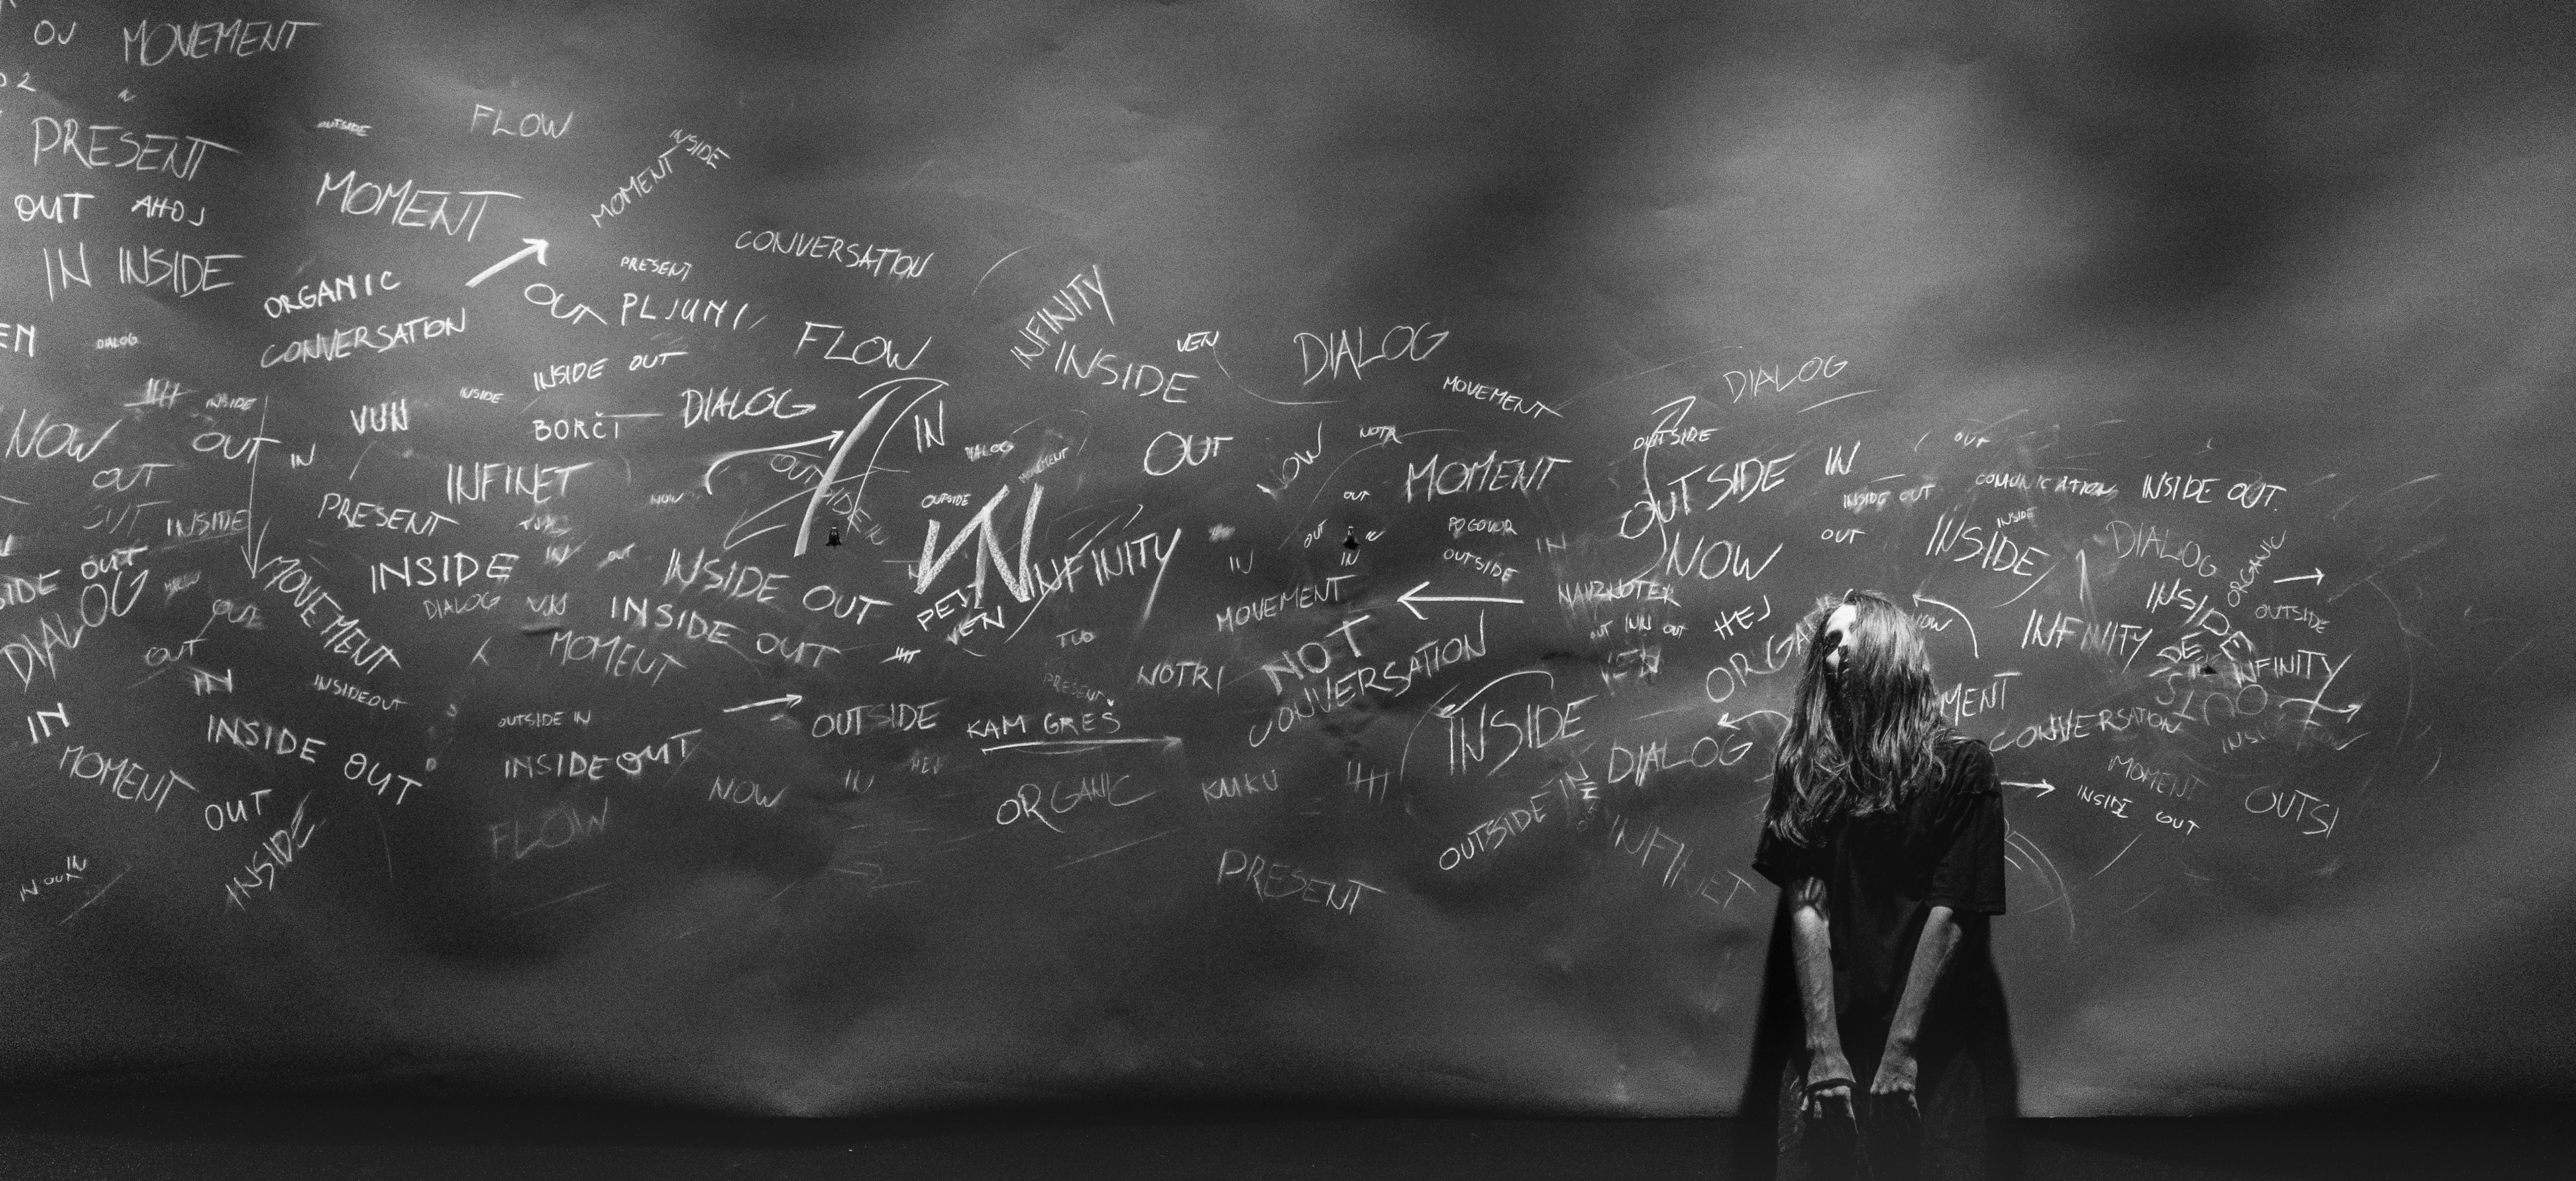 MOVEMENT
PRESENT
OUTSIDE
FLOW
INSIDE
MOMENT
MOMENT
OUT AHOJ
IN INSIDE
CONVERSATION
ORGANIC
PRESENT
OUT PLJUNI
CONVERSATION
DIALOG
FLOW
INFINITY
INSIDE
VEN
DIALOG
MOVEMENT
DIALOG
INSIDE OUT
INSIDE
INSIDE
VUN
BORČI
DIALOG
NOW
OUT
IN
IN
DIALOG
OUT
NOTR
OUTSIDE
OUT
OUT
INFINET
NOW
OUTSIDE
MOMENT
OUT
OUTSIDE IN
INSIDE OUT
COMUNICATION
INSIDE OUT.
PRESENT
INSIDE
OUT
POGOVOR
OUT
INSIDE
INSIDE
DIALOG
ORGANIC
OUT
INSIDE
IN
OUT
INSIDE OUT
VN
INFINITY
IN
IN
OUTSIDE
IN
NOW
DIALOG
MOVEMENT
DIALOG
INSIDE OUT
VEN
MOVEMENT
NAVZNOTER
HEJ
INSIDE
OUTSIDE
OUT
MOMENT
NOT
CONVERSATION
OUT INN OUT
INFINITY
INFINITY
IN
INSIDEOUT
NOTRI
PRESENT
IN
INSIDE OUT
OUTSIDE IN
OUTSIDE
KAM GREŠ
INSIDE
MENT
CONVERSATION
MOMENT
INSIDEOUT
NOW
IN
ORGANIC
DIALOG
MOMENT
INSIDE OUT
OUTSI
OUT
INSIDE
FLOW
OUTSIDE IN
INFINET
PRESENT